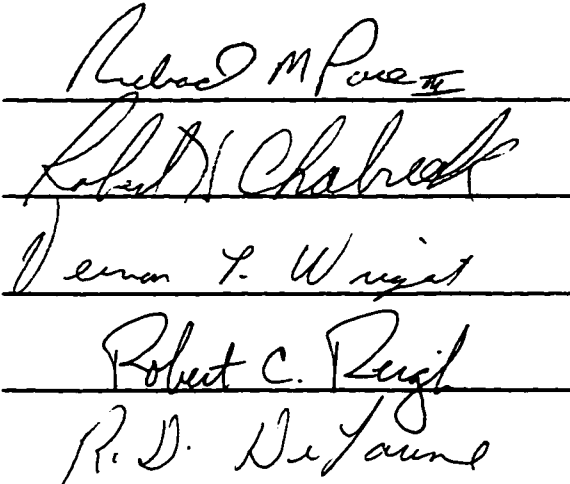 Richard M Pace III
Robert H Chabreck
Vernon L. Wright
Robert C. Reigh
R. D. DeLaune